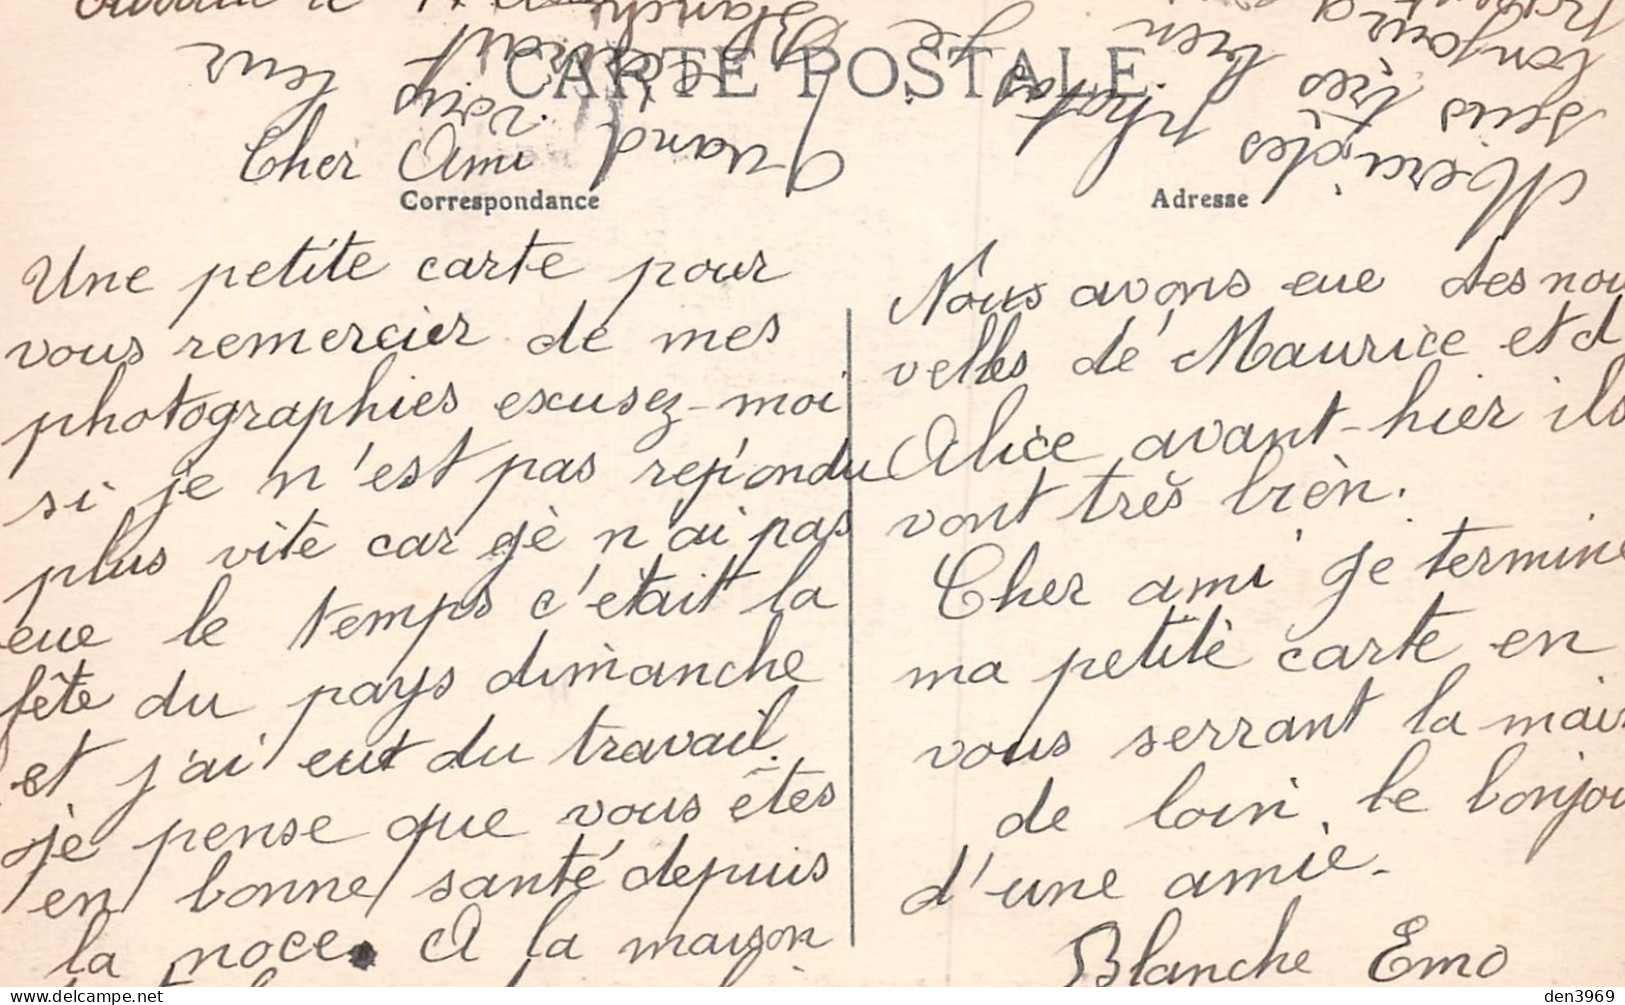 CARTE POSTALE
Cher Ami
Correspondance
Une petite carte pour
vous remercier de mes
photographies excusez-moi
si je n'est pas repondu
plus vite car gè n'ai pas
eue le temps c'était la
fête du pays dimanche
et j'ai eut du travail.
je pense que vous êtes
en bonne santé depuis
la noce. A la maison
Adresse
Nous avons eue des nou
velles de Maurice et d
Alice avant-hier ils
vont très bien.
Cher ami je termine
ma petite carte en
vous serrant la main
de loin. le bonjou
d'une amie.
Blanche Emo
Merci des photos
suis très bien
toujours
Quand vous leur
Blanche
den3969